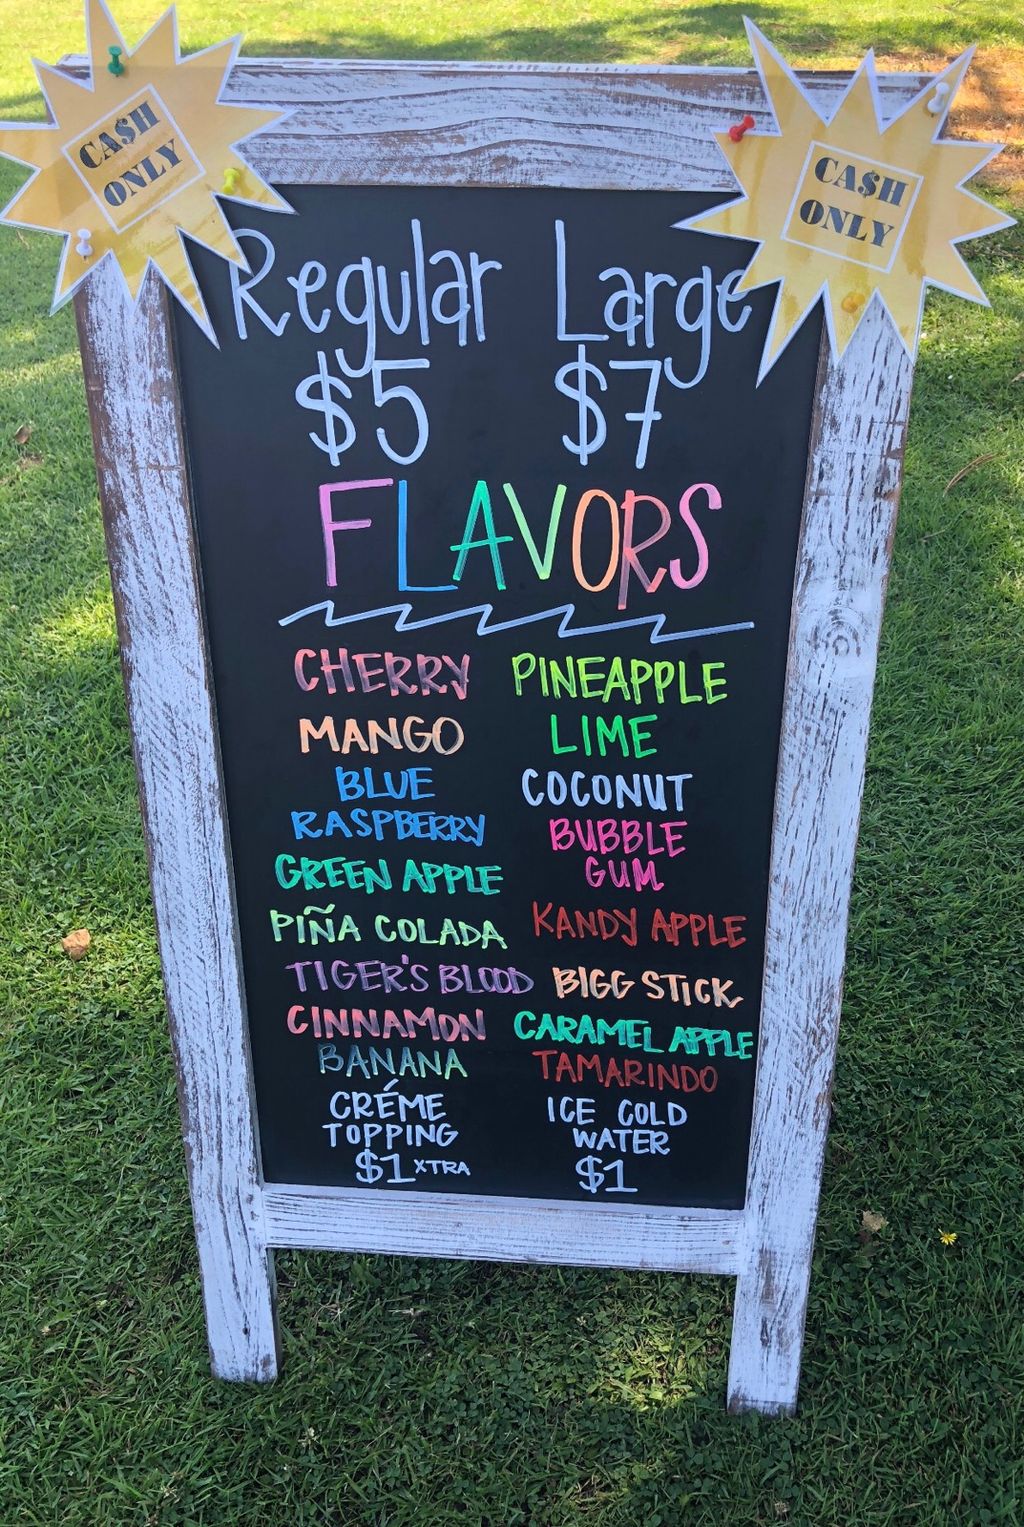 CA$H
ONLY
CA$H
ONLY
Regular Large
$5 $7
FLAVORS
CHERRY
MANGO
BLUE
RASPBERRY
GREEN APPLE
PIÑA COLADA
TIGER'S BLOOD
CINNAMON
BANANA
CRÉME
TOPPING
$1 XTRA
PINEAPPLE
LIME
COCONUT
BUBBLE
GUM
KANDY APPLE
BIGG STICK
CARAMEL APPLE
TAMARINDO
ICE COLD
WATER
$1